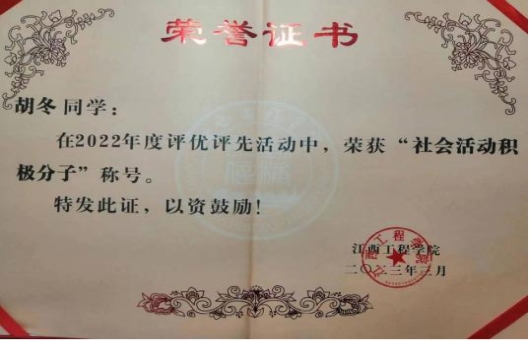 荣誉证书
胡冬同学：
在2022年度评优评先活动中，荣获“社会活动积
极分子”称号。
特发此证，以资鼓励！
江西工程学院
二〇二三年三月